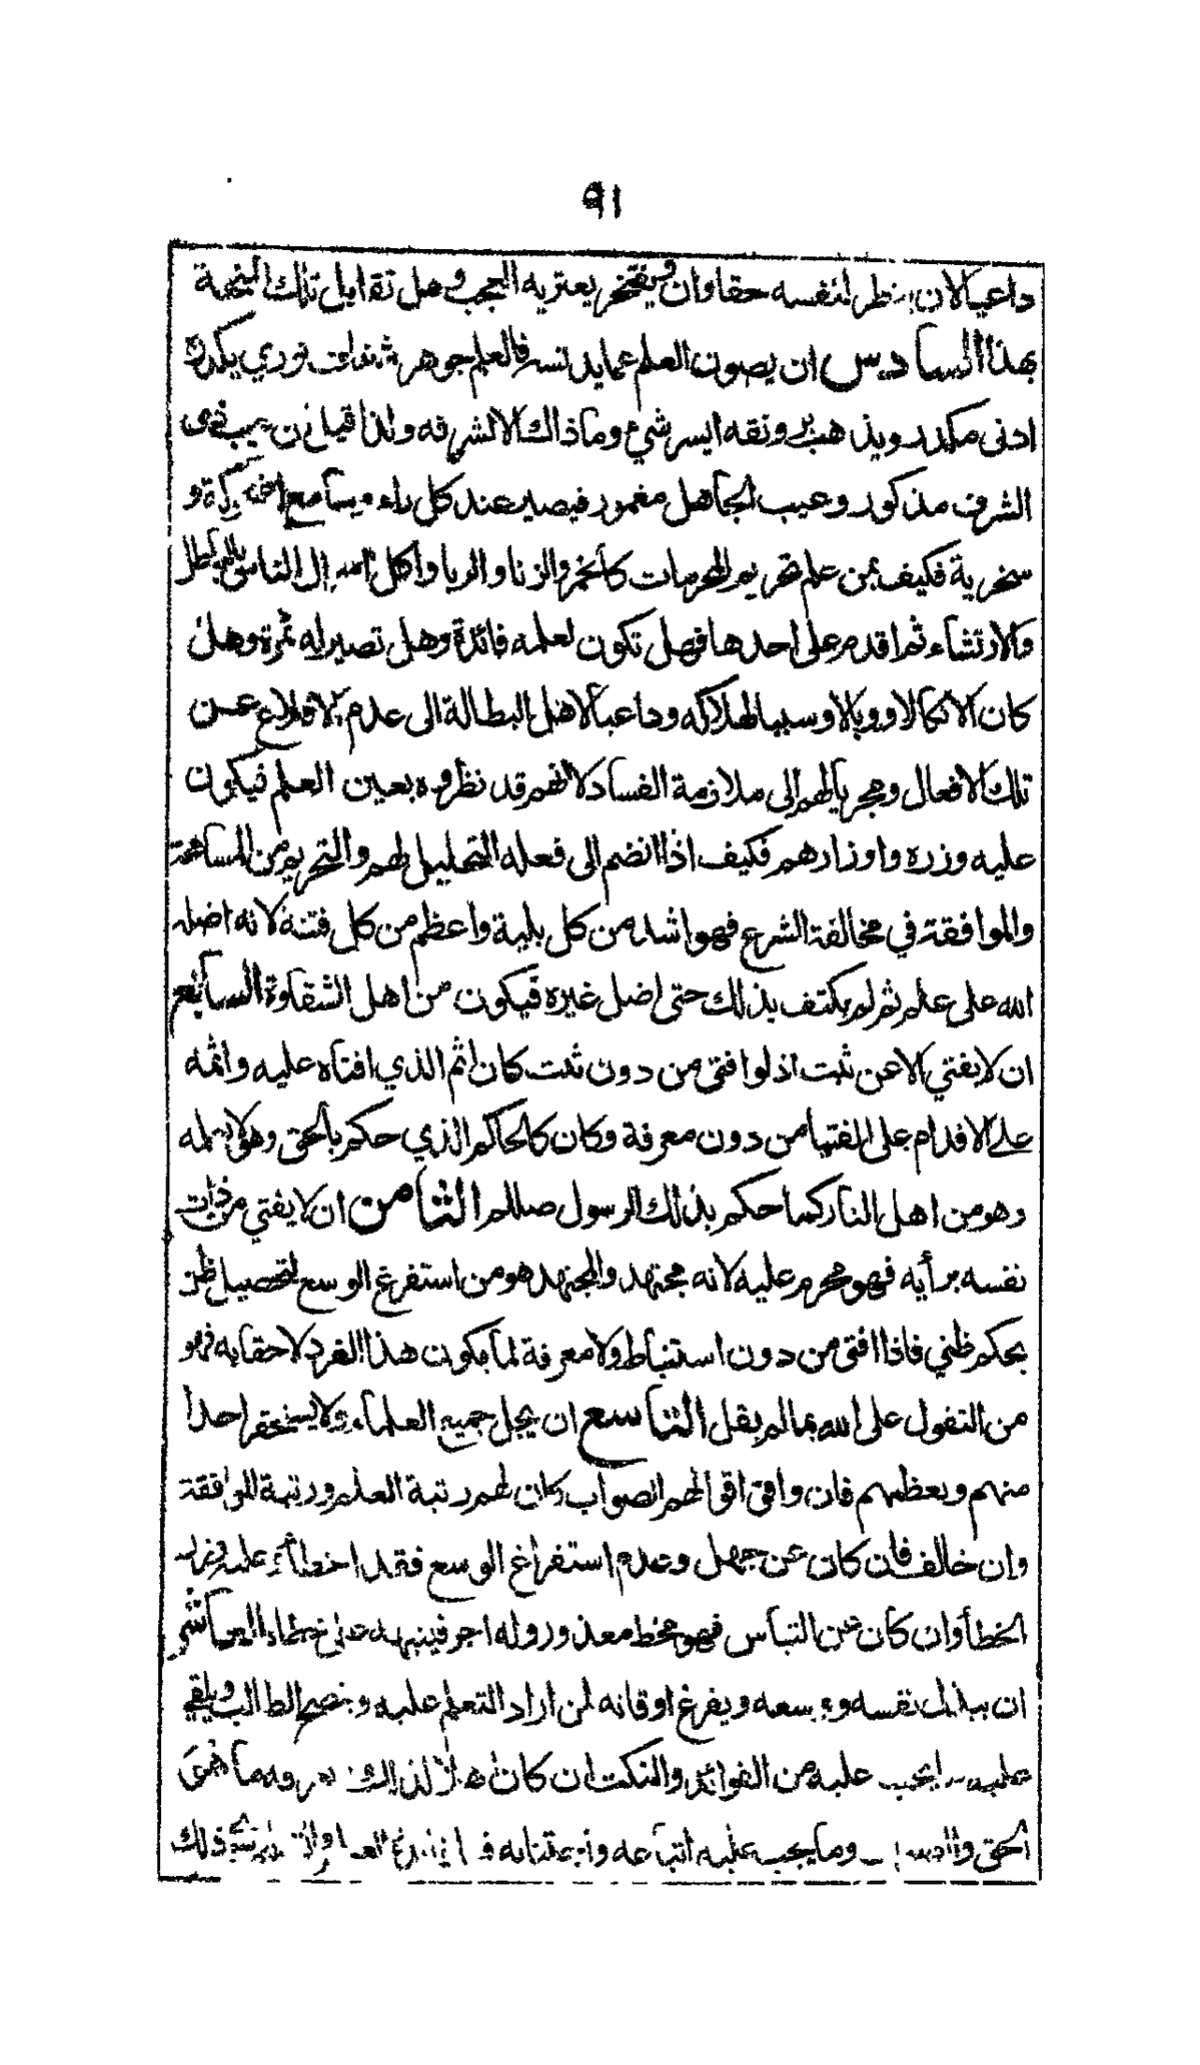 ٩١
داعيا لان ينظر لنفسه حقا وان يفتخر ويعتريه العجب وهل تقابل تلك النعمة
بهذا السادس ان يصون العلم عما يدنسه فالعلم جوهر شفاف نوري يكدره
ادنى مكدر ويذهب برونقه ايسر شيء وما ذاك الا لشرفه ولذا قيل ان عيب ذوى
الشرف مذكور وعيب الجاهل مغمور فيصير عند كل راء وسامع اضحوكة و
سخرية فكيف بمن علم تحريم المحرمات كالخمر والزنا والربا واكل اموال الناس بالباطل
والارتشاء ثم اقدم على احدها فهل تكون لعلمه فائدة وهل تصير له ثمرة وهل
كان الا نكالا ووبالا وسببا لهلاكه وداعيا لاهل البطالة الى عدم الاقلاع عن
تلك الافعال ومجريا لهم الى ملازمة الفساد لانهم قد نظروه بعين العلم فيكون
عليه وزره واوزارهم فكيف اذا انضم الى فعله التحليل لهم والتحريم من المسامحة
والموافقة في مخالفة الشرع فهو اشد من كل بلية واعظم من كل فتنة لانه اضله
الله على علم ثم لم يكتف بذلك حتى اضل غيره فيكون من اهل الشقاوة السابع
ان لا يفتي الا عن ثبت اذ لو افتى من دون ثبت كان اثم الذي افتاه عليه واثمه
على الاقدام على الفتيا من دون معرفة وكان كالحاكم الذي حكم بالحق وهو لا يعلمه
وهو من اهل النار كما حكم بذلك الرسول صللم الثامن ان لا يفتي من ذات
نفسه برأيه فهو محرم عليه لانه مجتهد والمجتهد هو من استفرغ الوسع لتحصيل ظن
بحكم ظني فاذا افتى من دون استنباط ولا معرفة لما يكون هذا الفرد لاحقا به فهو
من التقول على الله بما لم يقل التاسع ان يجل جميع العلماء ولا يستحقر احدا
منهم ويعظمهم فان وافق اقوالهم الصواب كان لهم رتبة العلم ورتبة الموافقة
وان خالف فان كان عن جهل وعدم استفراغ الوسع فقد اخطأ عليه وزر
الخطأ وان كان عن التباس فهو مخط معذور وله اجر فينبهه على خطاه العاشر
ان يبذل نفسه ووسعه ويفرغ اوقاته لمن اراد التعلم عليه وينصح الطالب ويلقي
عليه ما يجب عليه من الفوائد والنكت ان كان اهلا لذلك
الحق وما يجب عليه اتباعه واجتنابه ذلك